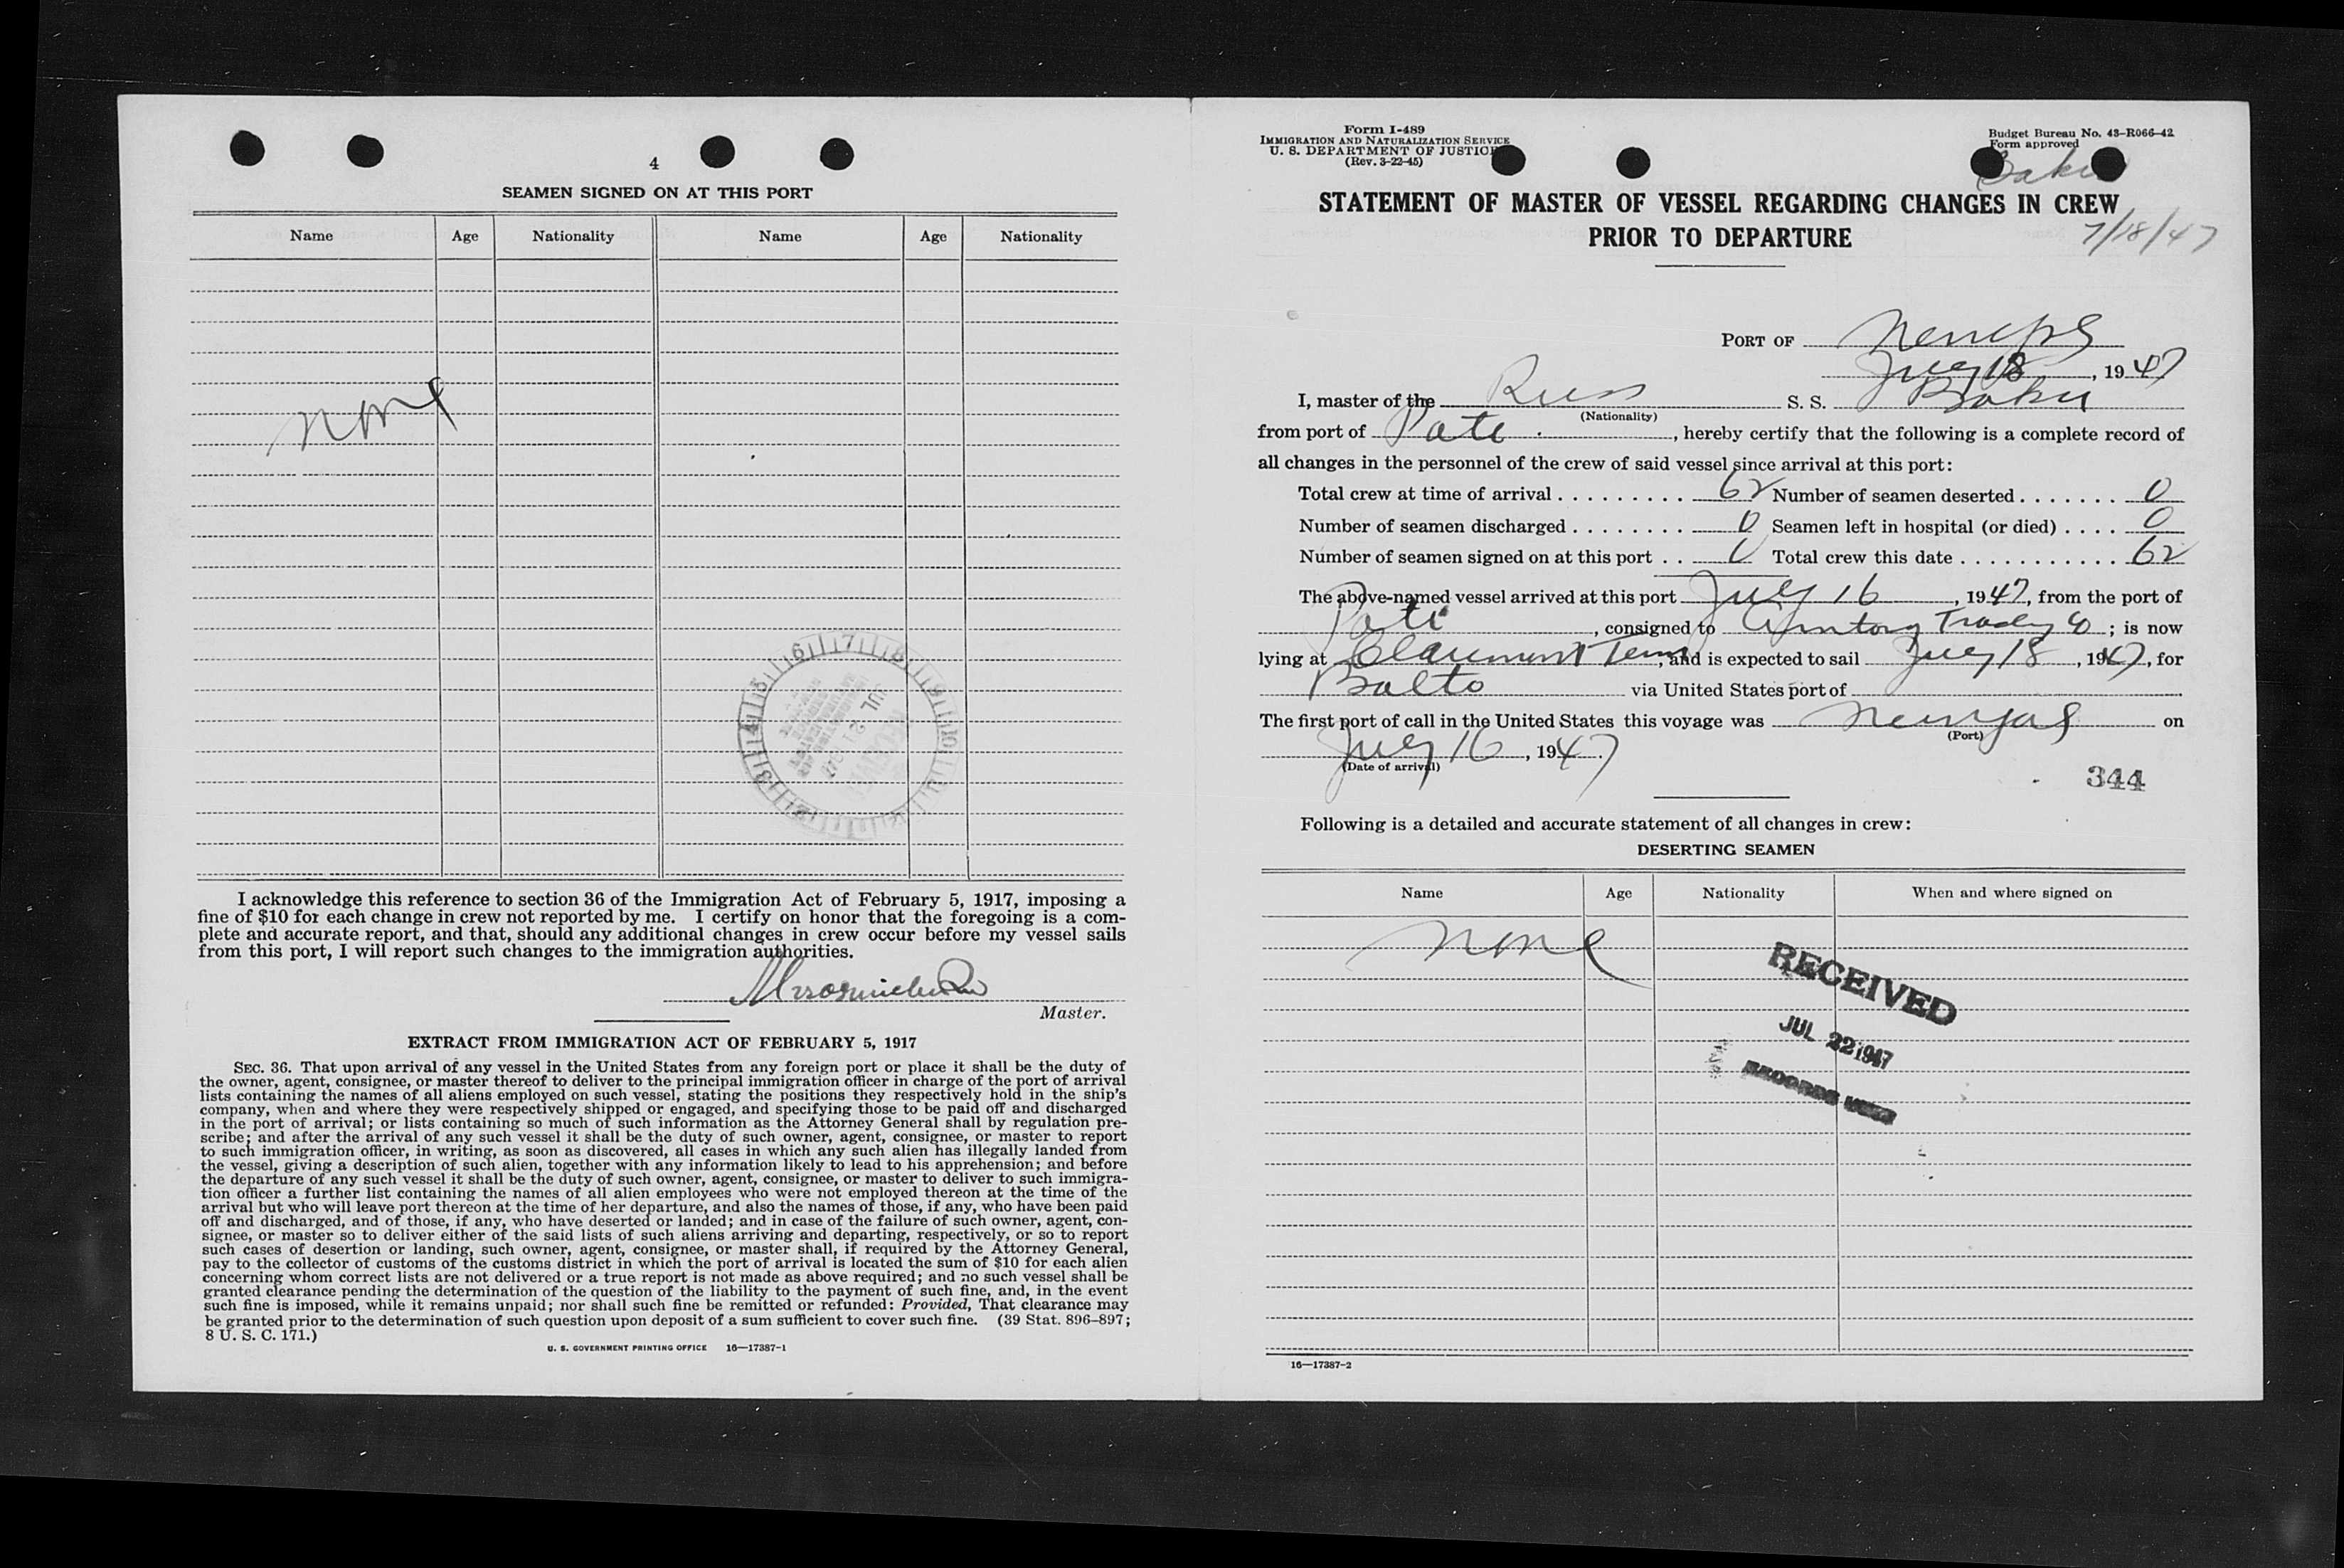 4
SEAMEN SIGNED ON AT THIS PORT
Name Age Nationality Name Age Nationality
None
JUL 21 1947
I acknowledge this reference to section 36 of the Immigration Act of February 5, 1917, imposing a
fine of $10 for each change in crew not reported by me. I certify on honor that the foregoing is a com-
plete and accurate report, and that, should any additional changes in crew occur before my vessel sails
from this port, I will report such changes to the immigration authorities.
Master.
EXTRACT FROM IMMIGRATION ACT OF FEBRUARY 5, 1917
SEC. 36. That upon arrival of any vessel in the United States from any foreign port or place it shall be the duty of
the owner, agent, consignee, or master thereof to deliver to the principal immigration officer in charge of the port of arrival
lists containing the names of all aliens employed on such vessel, stating the positions they respectively hold in the ship's
company, when and where they were respectively shipped or engaged, and specifying those to be paid off and discharged
in the port of arrival; or lists containing so much of such information as the Attorney General shall by regulation pre-
scribe; and after the arrival of any such vessel it shall be the duty of such owner, agent, consignee, or master to report
to such immigration officer, in writing, as soon as discovered, all cases in which any such alien has illegally landed from
the vessel, giving a description of such alien, together with any information likely to lead to his apprehension; and before
the departure of any such vessel it shall be the duty of such owner, agent, consignee, or master to deliver to such immigra-
tion officer a further list containing the names of all alien employees who were not employed thereon at the time of the
arrival but who will leave port thereon at the time of her departure, and also the names of those, if any, who have been paid
off and discharged, and of those, if any, who have deserted or landed; and in case of the failure of such owner, agent, con-
signee, or master so to deliver either of the said lists of such aliens arriving and departing, respectively, or so to report
such cases of desertion or landing, such owner, agent, consignee, or master shall, if required by the Attorney General,
pay to the collector of customs of the customs district in which the port of arrival is located the sum of $10 for each alien
concerning whom correct lists are not delivered or a true report is not made as above required; and no such vessel shall be
granted clearance pending the determination of the question of the liability to the payment of such fine, and, in the event
such fine is imposed, while it remains unpaid; nor shall such fine be remitted or refunded: Provided, That clearance may
be granted prior to the determination of such question upon deposit of a sum sufficient to cover such fine. (39 Stat. 896–897;
8 U. S. C. 171.)
U. S. GOVERNMENT PRINTING OFFICE 16—17387-1
Form I-489
IMMIGRATION AND NATURALIZATION SERVICE
U. S. DEPARTMENT OF JUSTICE
(Rev. 3-22-45)
Budget Bureau No. 43-R066-42
Form approved
Baku
STATEMENT OF MASTER OF VESSEL REGARDING CHANGES IN CREW
PRIOR TO DEPARTURE
7/18/47
PORT OF New York
July 18, 1947
I, master of the Russ S. S. Baku
(Nationality)
from port of Poti, hereby certify that the following is a complete record of
all changes in the personnel of the crew of said vessel since arrival at this port:
Total crew at time of arrival . . . . . . . . . 62 Number of seamen deserted . . . . . . . 0
Number of seamen discharged . . . . . . . . 0 Seamen left in hospital (or died) . . . . 0
Number of seamen signed on at this port . . 0 Total crew this date . . . . . . . . . . . 62
The above-named vessel arrived at this port July 16, 1947, from the port of
Poti, consigned to Amtorg Trading Co; is now
lying at Claremont Term, and is expected to sail July 18, 1947, for
Balto via United States port of
The first port of call in the United States this voyage was New York on
(Port)
July 16, 1947.
(Date of arrival)
344
Following is a detailed and accurate statement of all changes in crew:
DESERTING SEAMEN
Name Age Nationality When and where signed on
None
RECEIVED
JUL 22 1947
16—17387-2